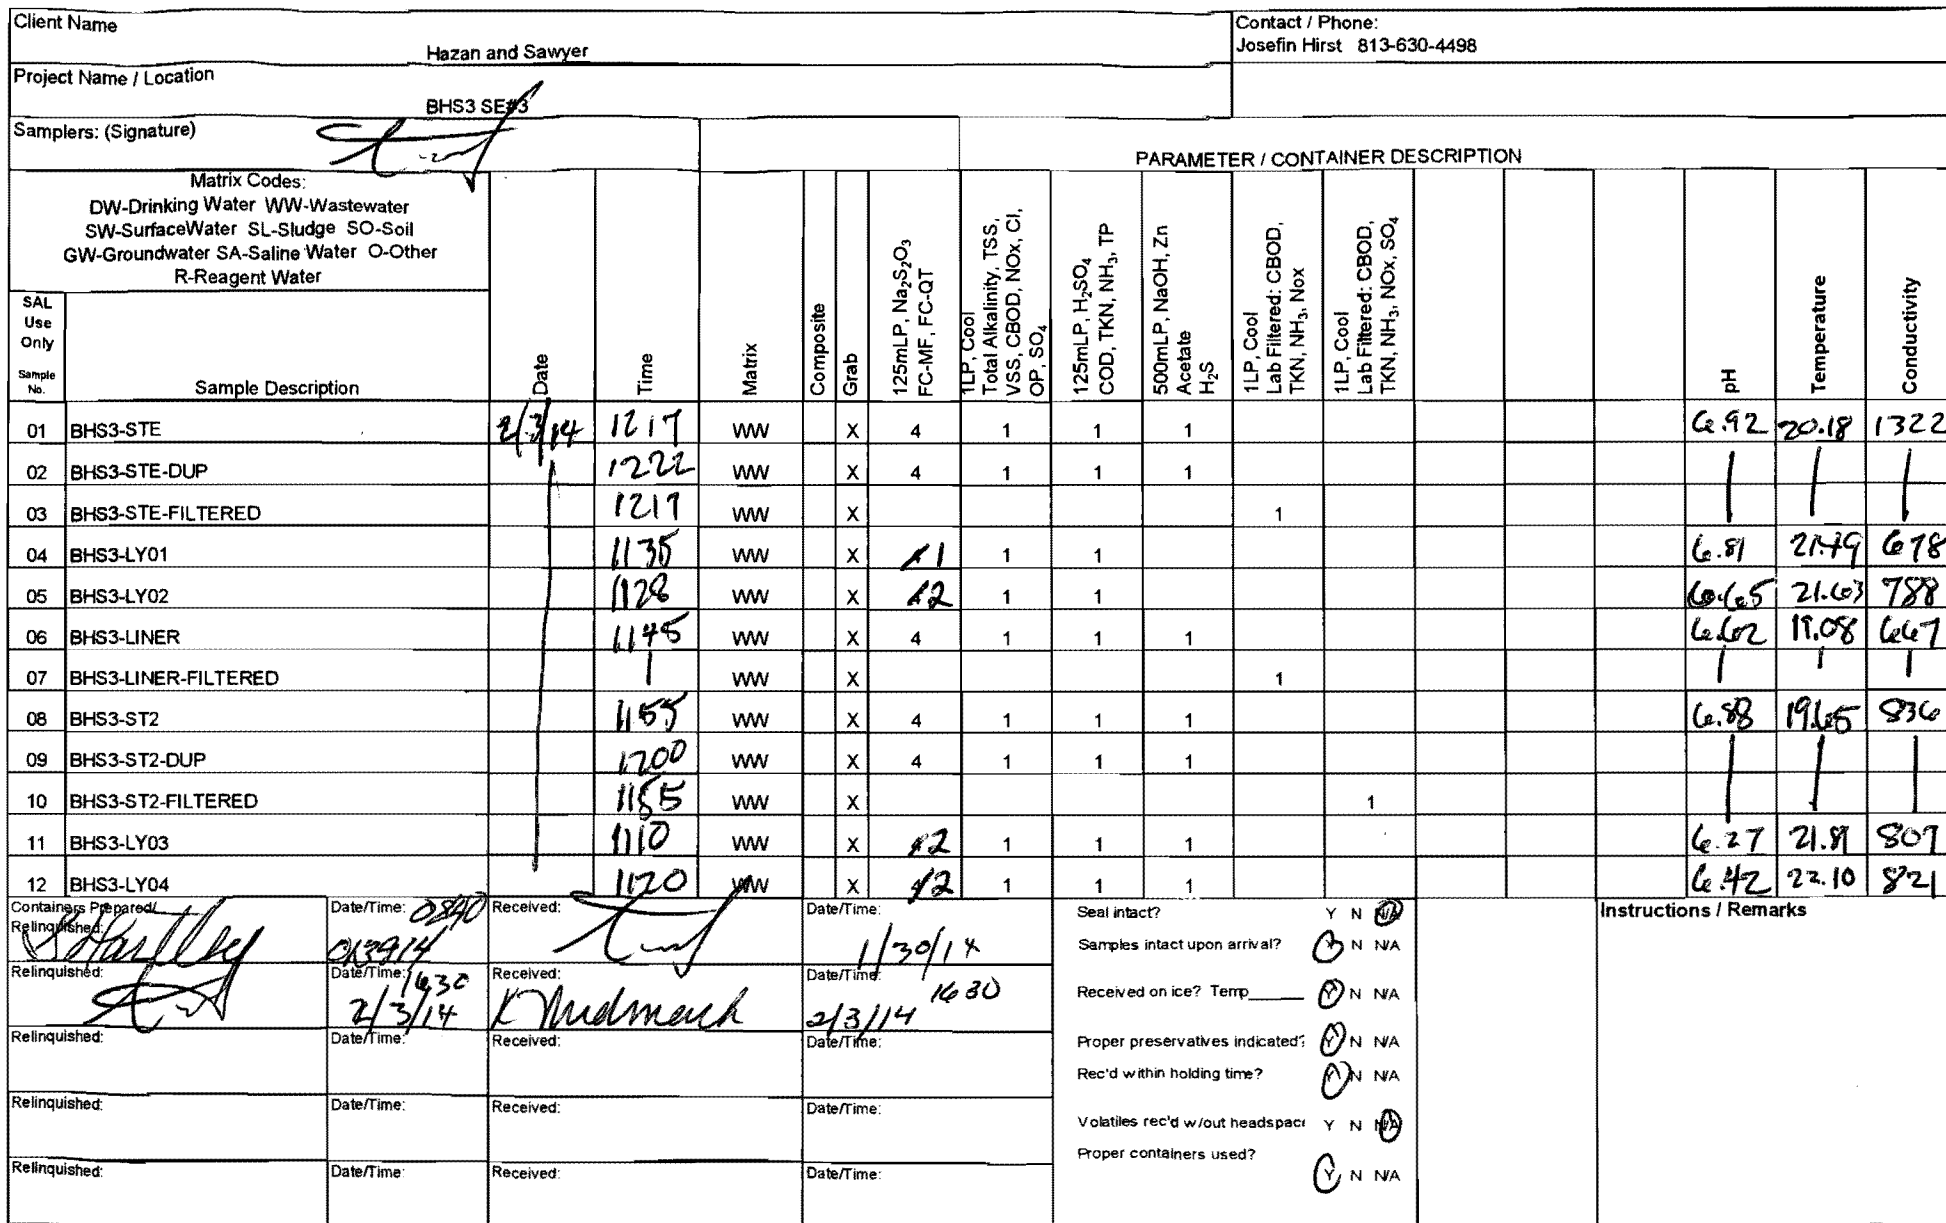 Client Name
Hazan and Sawyer
Contact / Phone:
Josefin Hirst 813-630-4498
Project Name / Location
BHS3 SE#3
Samplers: (Signature)
PARAMETER / CONTAINER DESCRIPTION
Matrix Codes:
DW-Drinking Water WW-Wastewater
SW-SurfaceWater SL-Sludge SO-Soil
GW-Groundwater SA-Saline Water O-Other
R-Reagent Water
SAL
Use
Only
Sample
No.
Sample Description
Date
Time
Matrix
Composite
Grab
125mLP, Na2S2O3
FC-MF, FC-QT
1LP, Cool
Total Alkalinity, TSS,
VSS, CBOD, NOx, Cl,
OP, SO4
125mLP, H2SO4
COD, TKN, NH3, TP
500mLP, NaOH, Zn
Acetate
H2S
1LP, Cool
Lab Filtered: CBOD,
TKN, NH3, Nox
1LP, Cool
Lab Filtered: CBOD,
TKN, NH3, NOx, SO4
pH
Temperature
Conductivity
01 BHS3-STE 2/3/14 1217 WW X 4 1 1 1 6.92 20.18 1322
02 BHS3-STE-DUP 1222 WW X 4 1 1 1
03 BHS3-STE-FILTERED 1217 WW X 1
04 BHS3-LY01 1135 WW X 1 1 1 6.81 21.49 678
05 BHS3-LY02 1128 WW X 2 1 1 6.65 21.63 788
06 BHS3-LINER 1145 WW X 4 1 1 1 6.62 19.08 667
07 BHS3-LINER-FILTERED WW X 1
08 BHS3-ST2 1155 WW X 4 1 1 1 6.88 19.65 836
09 BHS3-ST2-DUP 1200 WW X 4 1 1 1
10 BHS3-ST2-FILTERED 1155 WW X 1
11 BHS3-LY03 1110 WW X 2 1 1 1 6.27 21.81 807
12 BHS3-LY04 1120 WW X 2 1 1 1 6.42 22.10 821
Containers Prepared/
Relinquished:
Date/Time:
Received:
Date/Time:
1/30/14
Seal intact? Y N N/A
Instructions / Remarks
Samples intact upon arrival? Y N N/A
Relinquished:
Date/Time: 1630
2/3/14
Received:
Date/Time: 1630
2/3/14
Received on ice? Temp Y N N/A
Relinquished: Date/Time: Received: Date/Time:
Proper preservatives indicated? Y N N/A
Rec'd within holding time? Y N N/A
Relinquished: Date/Time: Received: Date/Time:
Volatiles rec'd w/out headspac Y N N/A
Proper containers used? Y N N/A
Relinquished: Date/Time: Received: Date/Time: